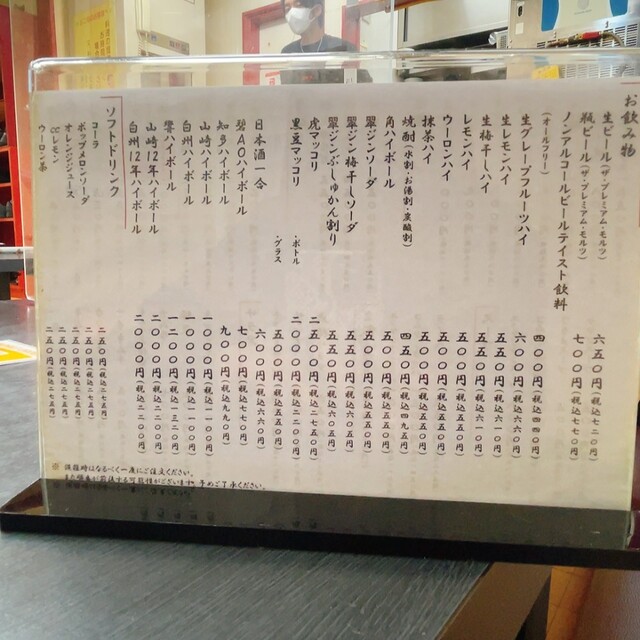 お飲み物
生ビール(ザ・プレミアム・モルツ) 六五〇円(税込七二〇円)
瓶ビール(ザ・プレミアム・モルツ) 七〇〇円(税込七七〇円)
ノンアルコールビールテイスト飲料
(オールフリー) 四〇〇円(税込四四〇円)
生グレープフルーツハイ 六〇〇円(税込六六〇円)
生レモンハイ 五五〇円(税込六一〇円)
生梅干しハイ 五五〇円(税込六一〇円)
レモンハイ 五〇〇円(税込五五〇円)
ウーロンハイ 五〇〇円(税込五五〇円)
抹茶ハイ 五〇〇円(税込五五〇円)
焼酎(水割・お湯割・炭酸割) 四五〇円(税込四九五円)
角ハイボール 五〇〇円(税込五五〇円)
翠ジンソーダ 五〇〇円(税込五五〇円)
翠ジン梅干しソーダ 五五〇円(税込六〇五円)
翠ジンぶしゅかん割り 五五〇円(税込六〇五円)
虎マッコリ 二五〇〇円(税込二七五〇円)
黒豆マッコリ ・ボトル 二〇〇〇円(税込二二〇〇円)
・グラス 五〇〇円(税込五五〇円)
日本酒一合 六〇〇円(税込六六〇円)
碧AOハイボール 七〇〇円(税込七七〇円)
知多ハイボール 九〇〇円(税込九九〇円)
山崎ハイボール 一〇〇〇円(税込一一〇〇円)
白州ハイボール 一〇〇〇円(税込一一〇〇円)
響ハイボール 一二〇〇円(税込一三二〇円)
山崎12年ハイボール 二〇〇〇円(税込二二〇〇円)
白州12年ハイボール 二〇〇〇円(税込二二〇〇円)
ソフトドリンク
コーラ 二五〇円(税込二七五円)
ポップメロンソーダ 二五〇円(税込二七五円)
オレンジジュース 二五〇円(税込二七五円)
CCレモン 二五〇円(税込二七五円)
ウーロン茶 二五〇円(税込二七五円)
※ 混雑時はなるべく一度にご注文ください。
また順番が前後する可能性がございます。予めご了承ください。